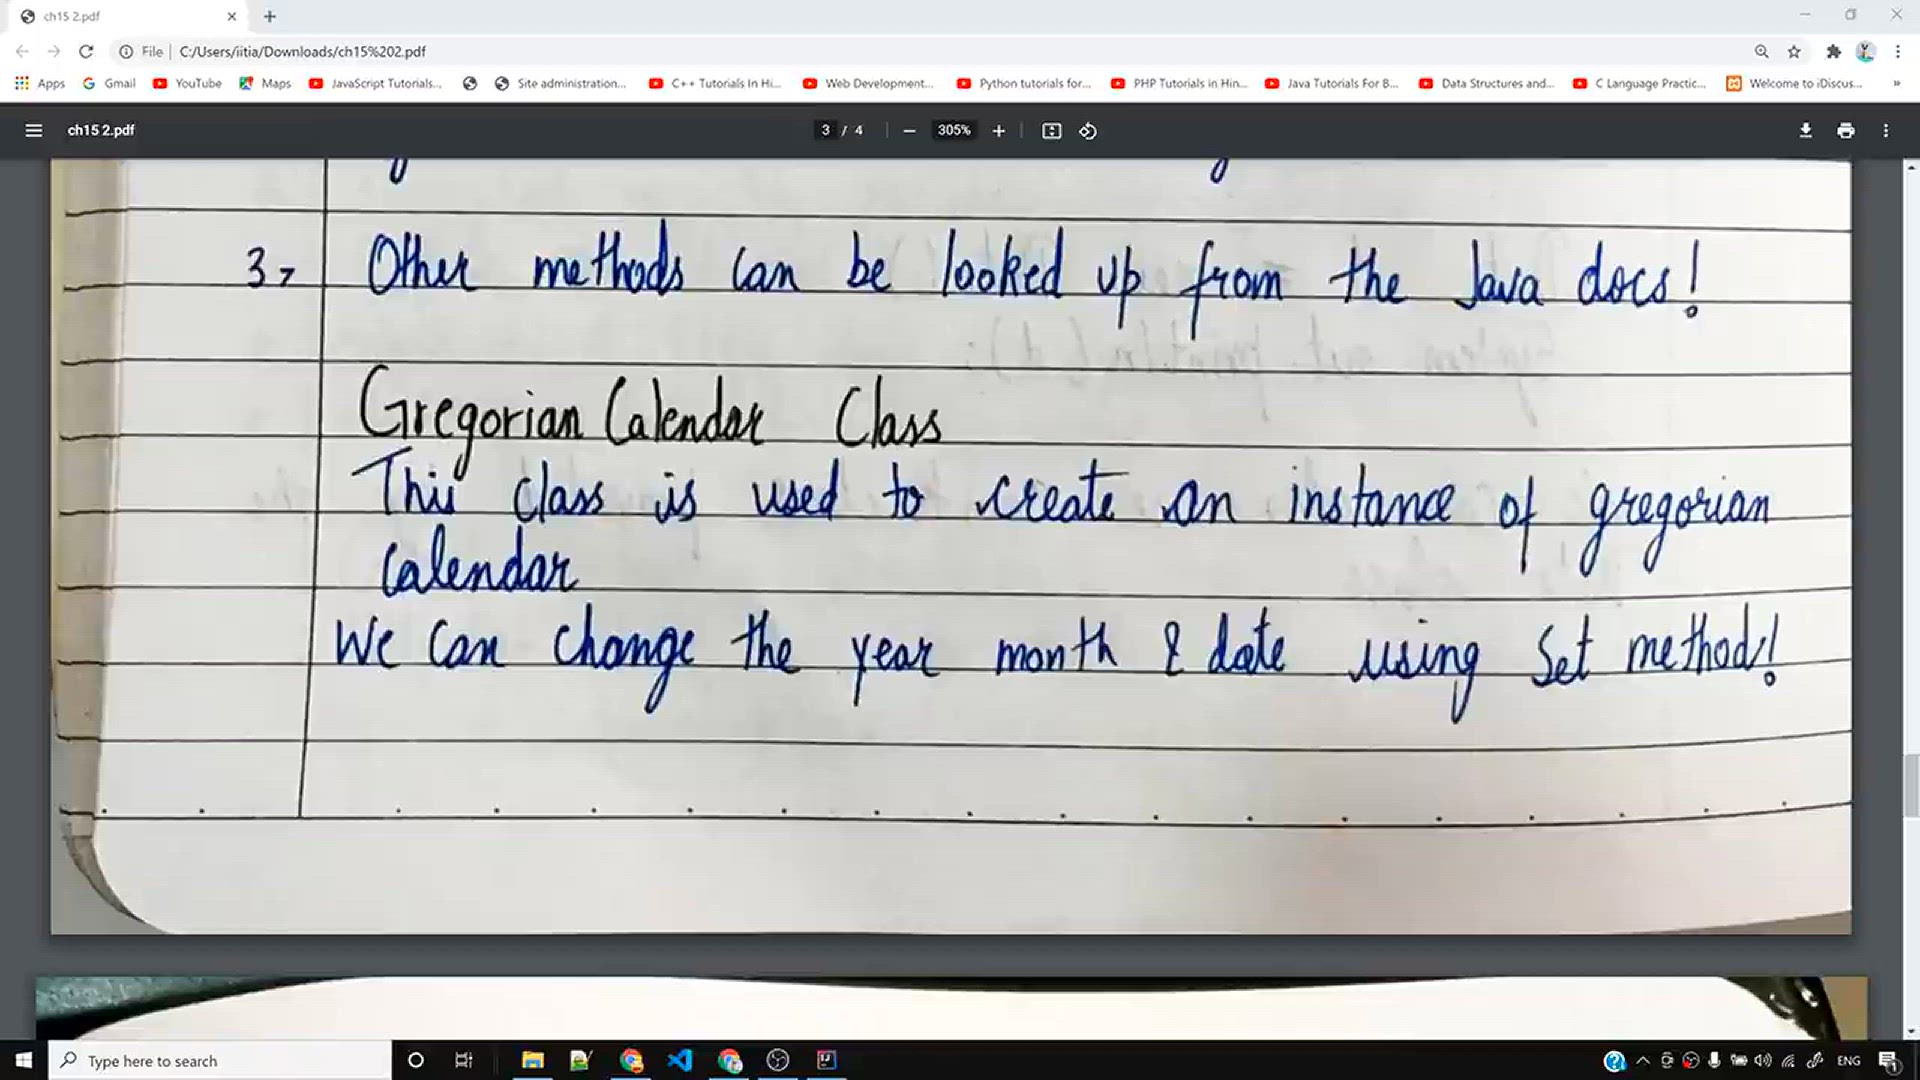 ch15 2.pdf
File | C:/Users/iitia/Downloads/ch15%202.pdf
Apps Gmail YouTube Maps JavaScript Tutorials... Site administration... C++ Tutorials In Hi... Web Development... Python tutorials for... PHP Tutorials in Hin... Java Tutorials For B... Data Structures and... C Language Practic... Welcome to iDiscus... »
ch15 2.pdf 3 / 4 305%
3> Other methods can be looked up from the Java docs!
Gregorian Calendar Class
This class is used to create an instance of gregorian
Calendar
We Can change the year month & date using Set method!
Type here to search ENG